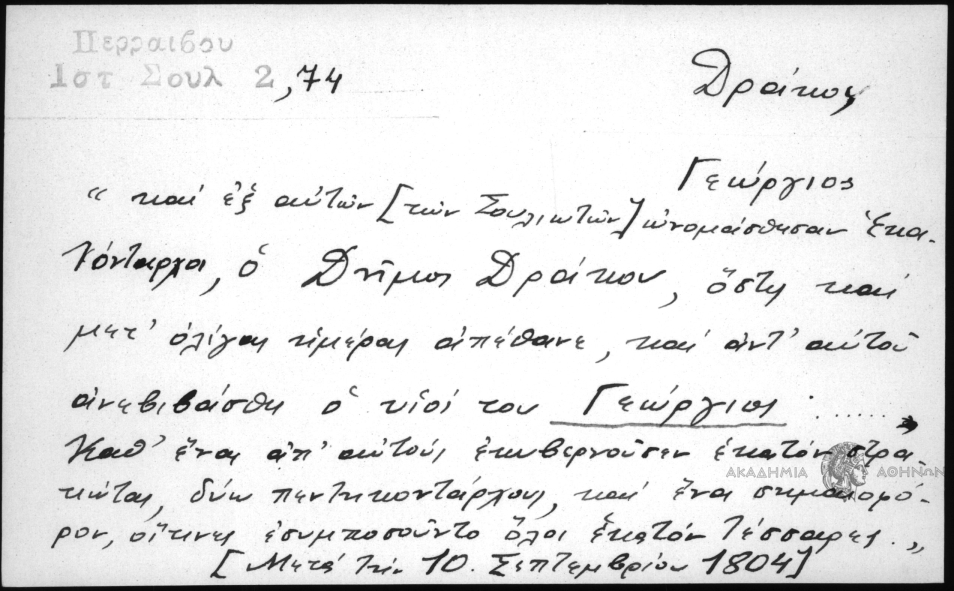 Περραιβου
Ιστ Σουλ 2,74
Δράκος
Γεώργιος
"καί ἐξ αὐτῶν [τῶν Σουλιωτῶν] ὠνομάσθησαν Ἑκα-
τόνταρχοι, ὁ Δῆμος Δράκου, ὅστις καί
μετ' ὀλίγας ἡμέρας ἀπέθανε, καί ἀντ' αὐτοῦ
ἀνεβιβάσθη ὁ υἱός του Γεώργιος ........
Καθ' ἕνας ἀπ' αὐτούς ἐκυβερνοῦσεν ἑκατόν στρα-
τιώτας, δύω πεντηκοντάρχους, καί ἕνα σημαιοφό-
ρον, οἵτινες ἐσυμποσοῦντο ὅλοι ἑκατόν τέσσαρες."
[Μετά τήν 10. Σεπτεμβρίου 1804]
ΑΚΑΔΗΜΙΑ ΑΘΗΝΩΝ